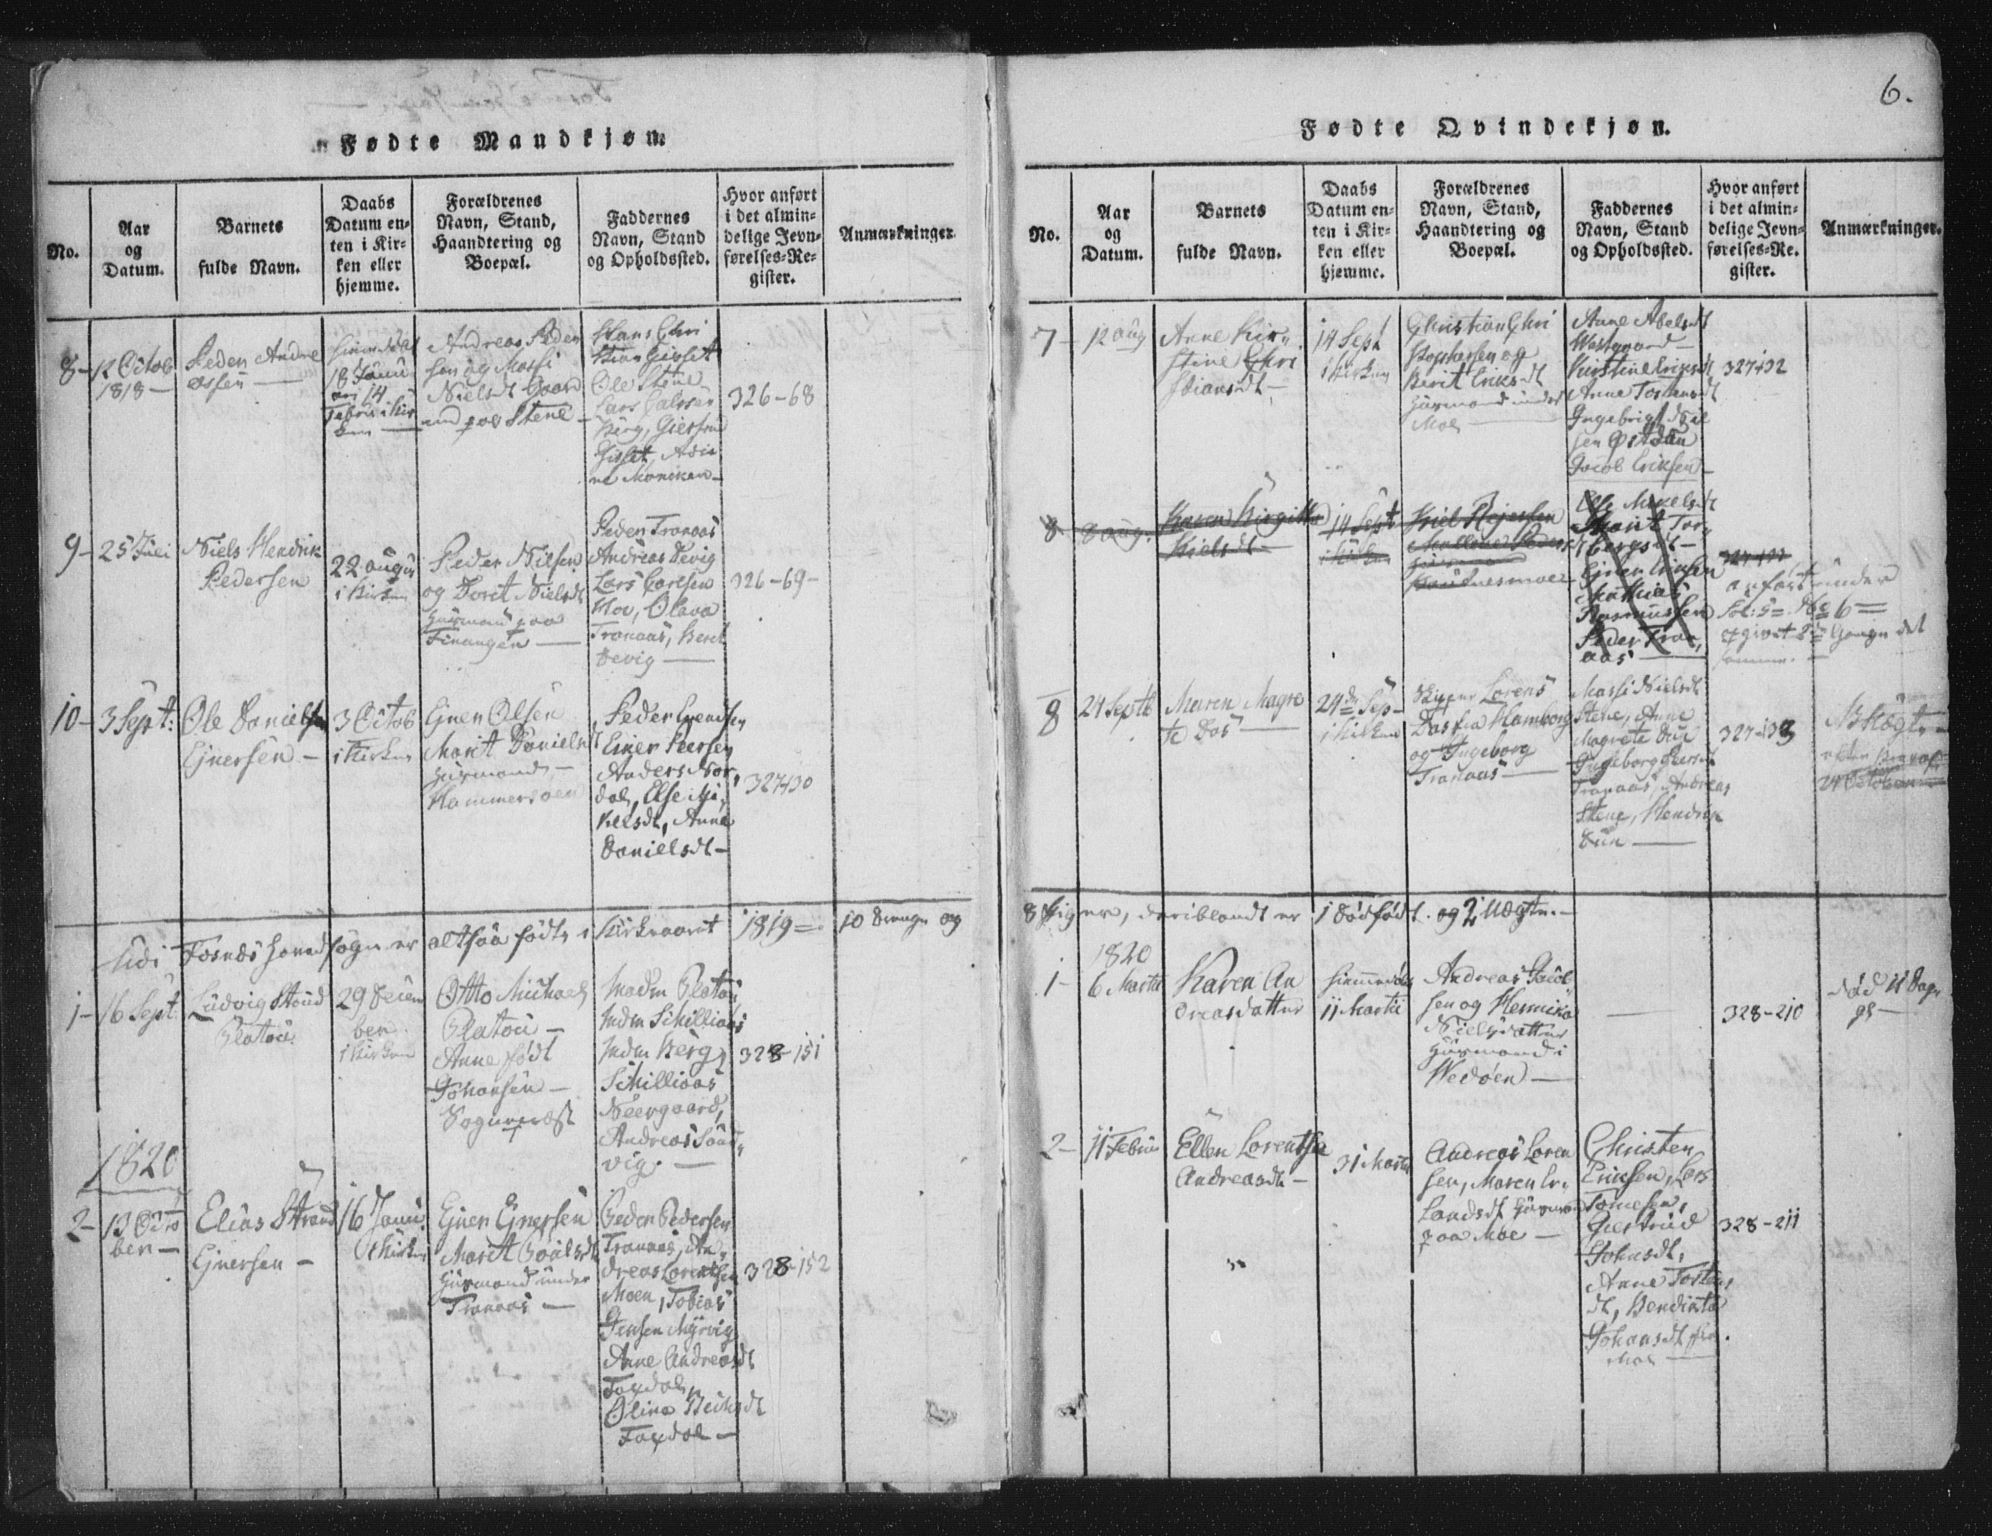 Fødte Mandkjøn.
No.
Aar
og
Datum.
Barnets
fulde Navn.
Daabs
Datum en-
ten i Kir-
ken eller
hjemme.
Forældrenes
Navn, Stand,
Haandtering og
Boepæl.
Faddernes
Navn, Stand
og Opholdssted.
Hvor anført
i det almin-
delige Jevn-
førelses-Re-
gister.
Anmærkninger.
8-
12 Octob
1818-
Peder Andre
assen
18 Janu
ari 14
Febru i Kir
ken
Andreas Peder
sen og Massi
Nielsdt Gaard
md paa Stene
Hans Chri
stian Gisset
Ole Stene
Lars Carlsen
Berg, Giertrud
Gisset,
326-68
9-
25 Juli
Niels Hendrik
Pedersen
22 august
i Kirken
Peder Nielsen
og Dorit Nielsdt
Huusmand paa
Finangen
Peder Tranaas
Andreas Devig
Lars Carlsen
Hov, Olava
Tranaas, Berit
Devig
326-69-
10-
3 Sept:
Ole Danielsen
Ejnersen
3 Octob
i Kirken
Ejner Olsen
Marit Danielsdt
Huusmand
Hammersøen
Peder Svendsen
Einer Peersen
Anders Nor
dal, Else Mi,
kelsdt, Anne
Danielsdt
327-130
Udi Fosnæs Hoved sogn er altsaa fødte i Kirkeaaret 1819 =. 10 Drenge og
1-
16 Sept.
Ludvig Stoud
Platou
29 Decem
ber
i Kirken
Otto Michael
Platou
Anne født
Johansen
Sognepræst
Madm Platou
Mdm Schilliaas
Mdm Berg
Schilliaas
Neergaard,
Andreas Saur
vig.
328-151
1820
2-
13 Octo
ber
Elias Strand
Ejnersen
16 Janu.
i Kirken
Ejner Ejnersen
Marit Paalsdt
Huusmand under
Tranaas
Peder Pedersen
Tranaas, An,
dreas Lorentsen
Moen, Tobias
Jensen Myrvig
Anne Andreasdt
Faxdal,
Olina
Faxdal
328-152
6.
Fødte Qvindekjøn.
No.
Aar
og
Datum.
Barnets
fulde Navn.
Daabs
Datum en-
ten i Kir-
ken eller
hjemme.
Forældrenes
Navn, Stand,
Haandtering og
Boepæl.
Faddernes
Navn, Stand
og Opholdssted.
Hvor anført
i det almin-
delige Jevn-
førelses-Re.
gister.
Anmærkninger.
7-
12 aug
Anne Kir,
stine Chri
stiansdt
14 Sept
i Kirken
Christian Chri
stophersen og
Berit Eriksdt
Huusmand under
Moe
Anne Abelsdt
Westgaard
Kirstine Eriksdt
Anne Tostensdt
Ingebrigt Niel
sen
Jacob Eriksen
327-132
8
8 aug.
Karen Birgitha
Nielsdt
14 Sept
i Kirken
Niel Rejersen
Else Mikelsdt
Marit Tor,
bergsdt
Ejner Einersen
Mathias
Rasmussen
Peder Tran,
aas
anført under
Fol: 5= No 6=
opgivet 2de Gange det
samme.
8
24 Septb
Maren Magre
te Das
24de Sep
i Kirken
Lorens
Das fra Hamborg
og Ingeborg
Tranaas
Massi Nielsdt
Stene, Anne
Magrete Due
Ingeborg
Tranaas, Andreas
Stene, Hendrik
Due
327-133
NB Uægte
24 October
8 Piger, deriblandt er 1 Dødfødt. og 2 Uægte.
1820
1-
6 Martii
Karen An
dreasdatter
hjemmedøbt
11 Martii
Andreas Jacob
sen og Hennika
Nielsdatter
Huusmand i
Wedøen
328-210
død 11 Dage
gl
2-
11 Febru
Ellen Lorentse
Andreasdt
31 Marti
Andreas Loren
sen, Maren Er,
landsdt Huusmand
paa Moe
Christen
Eriksen, Lars
Tomesen,
Giertrud
Johnsdt,
Anne Tostens
dt, Bendicta
Johansdt fra
Moe
328-211